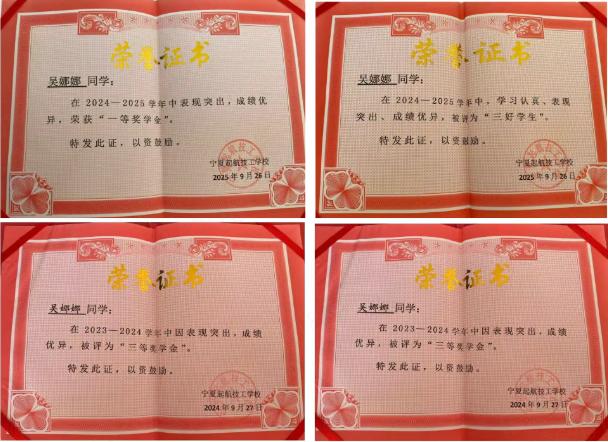 荣誉证书
吴娜娜 同学：
在 2024—2025学年中表现突出，成绩优
异，荣获“一等奖学金”。
特发此证，以资鼓励。
宁夏起航技工学校
2025 年 9 月 26 日
荣誉证书
吴娜娜 同学：
在 2024—2025学年中，学习认真、表现
突出、成绩优异，被评为“三好学生”。
特发此证，以资鼓励。
宁夏起航技工学校
2025 年 9 月 26 日
荣誉证书
吴娜娜 同学：
在 2023—2024 学年中因表现突出，成绩
优异，被评为“三等奖学金”。
特发此证，以资鼓励。
宁夏起航技工学校
2024 年 9 月 27 日
荣誉证书
吴娜娜 同学：
在 2023—2024 学年中因表现突出，成绩
优异，被评为“三等奖学金”。
特发此证，以资鼓励。
宁夏起航技工学校
2024 年 9 月 27 日